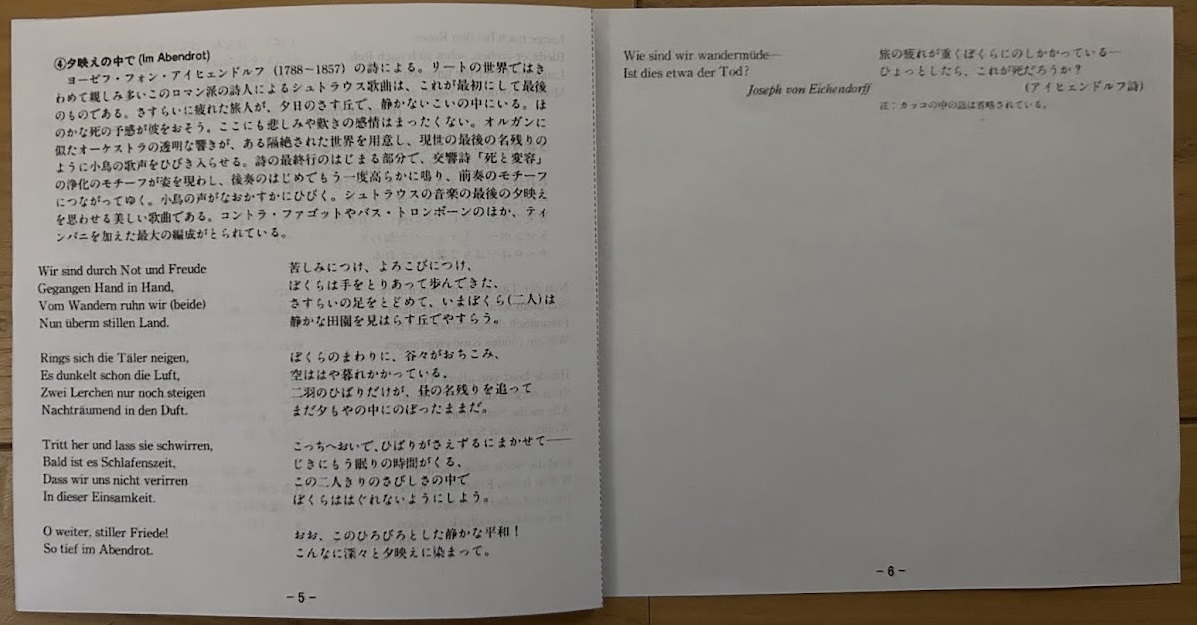 ④夕映えの中で (Im Abendrot)
ヨーゼフ・フォン・アイヒェンドルフ (1788~1857) の詩による。リートの世界ではき
わめて親しみ多いこのロマン派の詩人によるシュトラウス歌曲は、これが最初にして最後
のものである。さすらいに疲れた旅人が、夕日のさす丘で、静かないこいの中にいる。ほ
のかな死の予感が彼をおそう。ここにも悲しみや歎きの感情はまったくない。オルガンに
似たオーケストラの透明な響きが、ある隔絶された世界を用意し、現世の最後の名残りの
ように小鳥の歌声をひびき入らせる。詩の最終行のはじまる部分で、交響詩「死と変容」
の浄化のモチーフが姿を現わし、後奏のはじめでもう一度高らかに鳴り、前奏のモチーフ
につながってゆく。小鳥の声がなおかすかにひびく。シュトラウスの音楽の最後の夕映え
を思わせる美しい歌曲である。コントラ・ファゴットやバス・トロンボーンのほか、ティ
ンパニを加えた最大の編成がとられている。
Wir sind durch Not und Freude
Gegangen Hand in Hand,
Vom Wandern ruhn wir (beide)
Nun überm stillen Land.
Rings sich die Täler neigen,
Es dunkelt schon die Luft,
Zwei Lerchen nur noch steigen
Nachträumend in den Duft.
Tritt her und lass sie schwirren,
Bald ist es Schlafenszeit,
Dass wir uns nicht verirren
In dieser Einsamkeit.
O weiter, stiller Friede!
So tief im Abendrot.
苦しみにつけ、よろこびにつけ、
ぼくらは手をとりあって歩んできた、
さすらいの足をとどめて、いまぼくら(二人)は
静かな田園を見はらす丘でやすらう。
ぼくらのまわりに、谷々がおちこみ、
空ははや暮れかかっている、
二羽のひばりだけが、昼の名残りを追って
まだ夕もやの中にのぼったままだ。
こっちへおいで、ひばりがさえずるにまかせて——
じきにもう眠りの時間がくる、
この二人きりのさびしさの中で
ぼくらははぐれないようにしよう。
おお、このひろびろとした静かな平和！
こんなに深々と夕映えに染まって。
－5－
Wie sind wir wandermüde—
Ist dies etwa der Tod?
Joseph von Eichendorff
旅の疲れが重くぼくらにのしかかっている—
ひょっとしたら、これが死だろうか？
(アイヒェンドルフ詩)
注：カッコの中の語は省略されている。
－6－